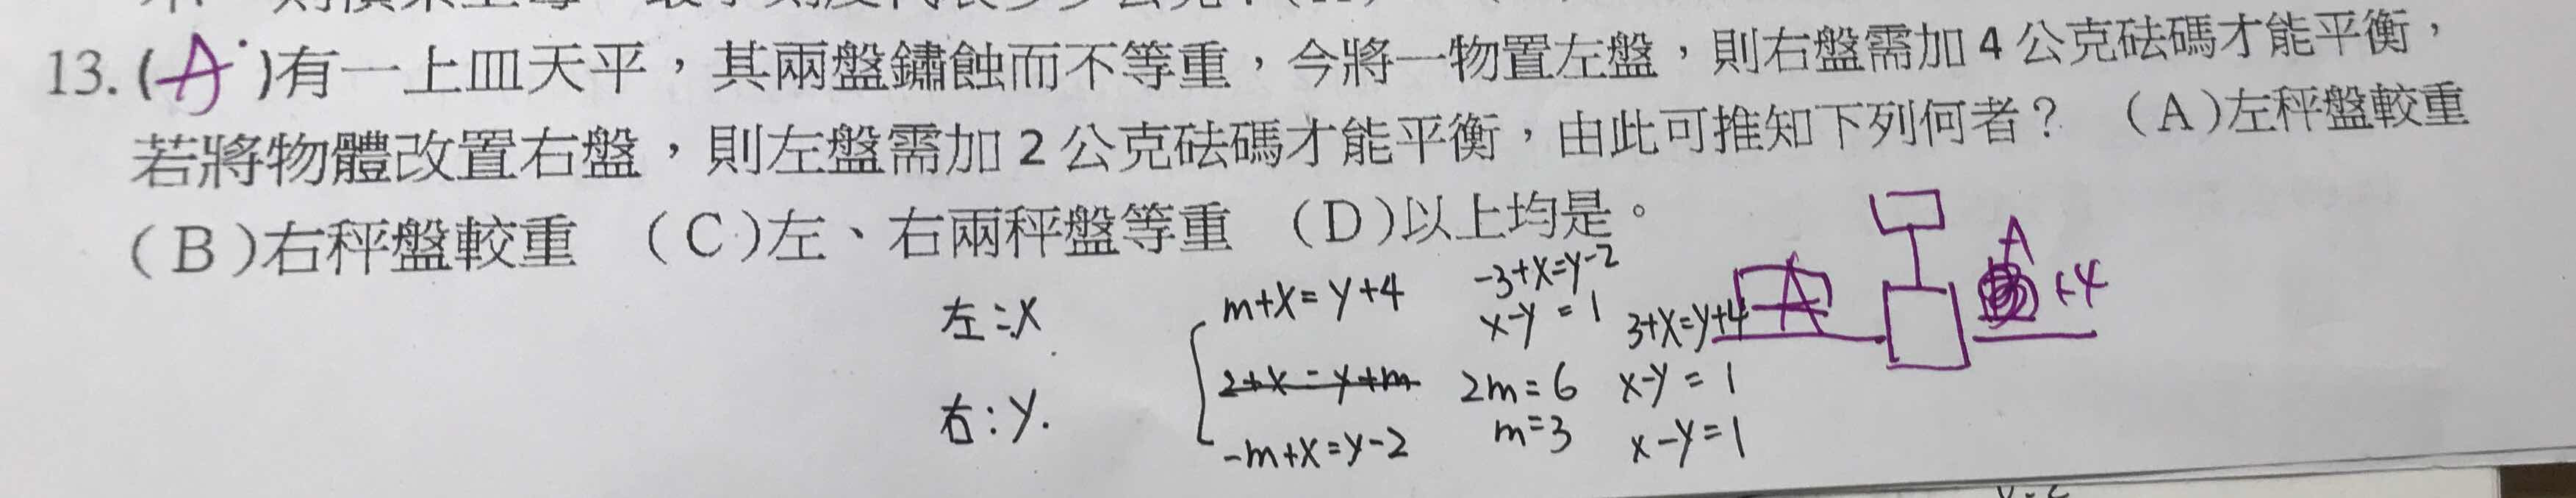 13.(A)有一上皿天平，其兩盤鏽蝕而不等重，今將一物置左盤，則右盤需加4公克砝碼才能平衡，
若將物體改置右盤，則左盤需加2公克砝碼才能平衡，由此可推知下列何者？ （A)左秤盤較重
（B)右秤盤較重 （C)左、右兩秤盤等重 （D)以上均是。
左:X
右:y.
m+x=y+4
2+x=y+m
-m+x=y-2
-3+x=y-2
x-y=1
2m=6
m=3
3+x=y+4
x-y=1
x-y=1
A
A
+4